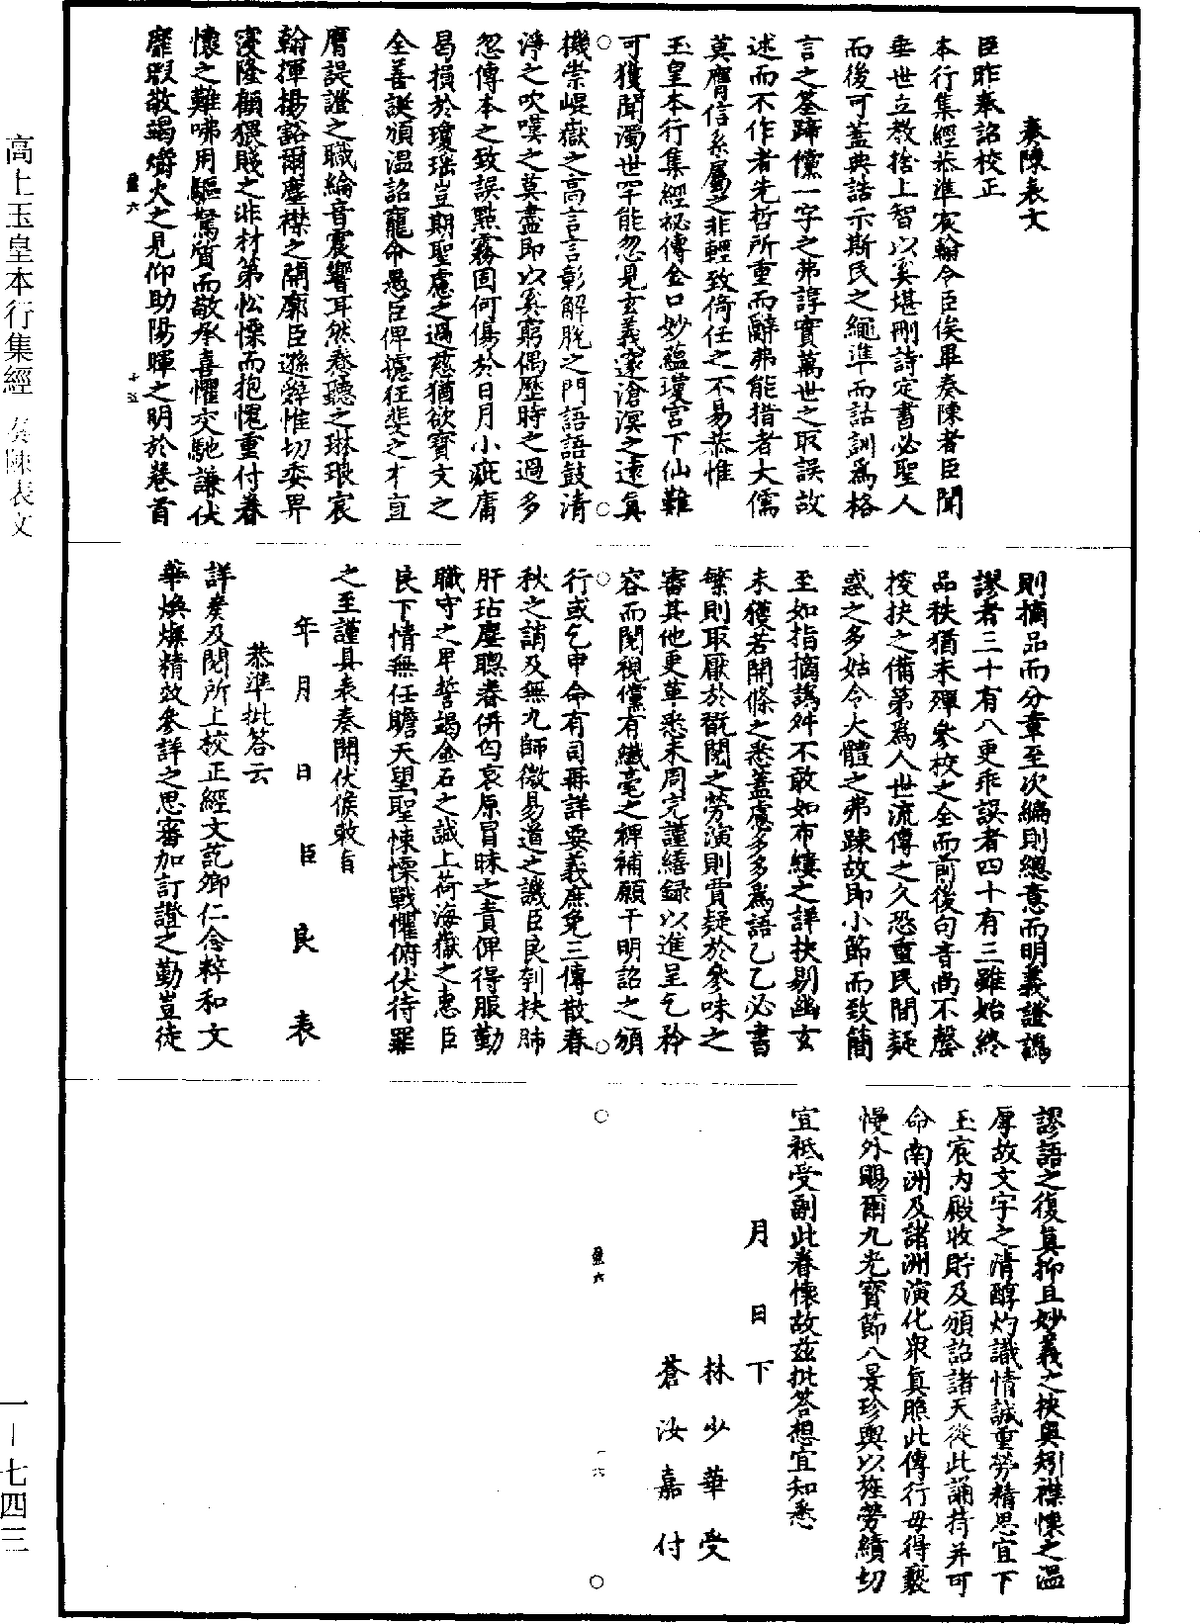 奏陳表文
臣昨奉詔校正
本行集經恭準宸翰令臣俟畢奏陳者臣聞
垂世立教捨上智以奚堪刪詩定書必聖人
而後可蓋典誥示斯民之繩準而詁訓爲格
言之筌蹄儻一字之弗諄實萬世之取誤故
述而不作者先哲所重而辭弗能措者大儒
莫膺信系屬之非輕致倚任之不易恭惟
玉皇本行集經祕傳金口妙蘊瓊宮下仙難
可獲聞濁世罕能忽見玄義邃滄溟之遠眞
機崇崐嶽之高言言彰解脫之門語語鼓清
淨之吹嘆之莫盡即以奚窮偶歷時之過多
忽傳本之致誤點霧固何傷於日月小疵庸
曷損於瓊瑶豈期聖慮之過慈猶欲寶文之
全善誕頒温詔寵命愚臣俾攄狂斐之才直
膺誤證之職綸音震響耳然春聽之琳琅宸
翰揮揚豁爾塵襟之開廓臣遜辭惟切委畀
寖隆顧猥賤之非材第忪慄而抱愧重付眷
懷之難咈用驅駑質而敬承喜懼交馳謙伏
靡暇敬竭爝火之見仰助陽暉之明於卷首
則摘品而分章至次編則總意而明義證譌
謬者三十有八更乖誤者四十有三雖始終
品秩猶未殫參校之全而前後句音尚不罄
挍抉之備第爲人世流傳之久恐重民間疑
惑之多姑令大體之弗踈故即小節而致簡
至如指摘譌舛不敢如布縷之詳抉剔幽玄
未獲若開條之悉蓋慮多多爲語乙乙必書
繁則取厭於翫閱之勞演則賈疑於參味之
審其他更革悉未周完謹繕録以進呈乞矜
容而閱視儻有纖毫之裨補願干明詔之頒
行或乞申命有司再詳要義庶免三傳散春
秋之誚及無九師微易道之譏臣良刳抉肺
肝玷塵聰眷併匃哀原冒昧之責俾得服勤
職守之卑誓竭金石之誠上荷海嶽之惠臣
良下情無任瞻天望聖悚慄戰懼俯伏待罪
之至謹具表奏聞伏候敕旨
年月日臣良表
恭準批答云
詳奏及閱所上校正經文訖卿仁念粹和文
華煥爛精效參詳之思審加訂證之勤豈徒
謬語之復眞抑且妙義之抉奥矧襟懷之温
厚故文字之清醇灼識情誠重勞精思宜下
玉宸内殿收貯及頒詔諸天從此誦持并可
命南洲及諸洲演化衆眞照此傳行毋得褻
慢外賜爾九光寶節八景珍輿以旌勞績切
宜祗受副此眷懷故兹批答想宜知悉
月日下
林少華受
蒼汝嘉付
高上玉皇本行集經 奏陳表文
一—七四三
盈六
十五
盈六
十六